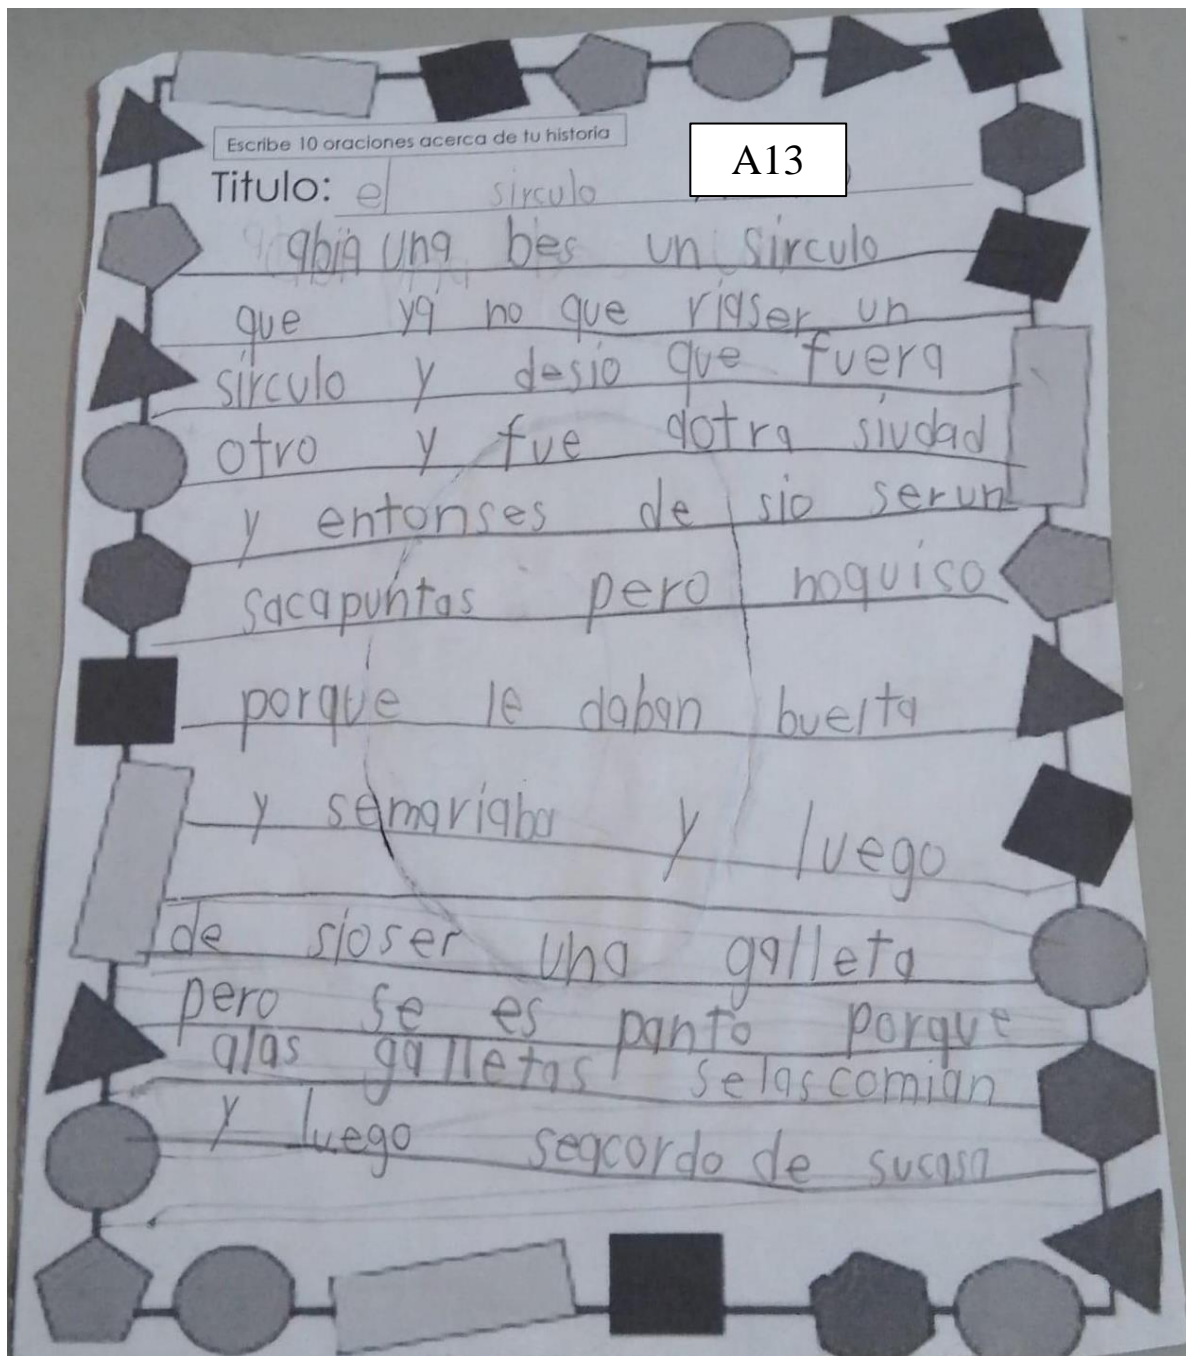 Escribe 10 oraciones acerca de tu historia
A13
Titulo: el sirculo
abia una bes un sirculo
que ya no que riaser un
sirculo y desio que fuera
otro y fue dotra siudad
y entonses de sio serun
sacapuntas pero noquiso
porque le daban buelta
y semariaba y luego
de sioser una galleta
pero se es panto porque
alas galletas selascomian
y luego seacordo de sucasa